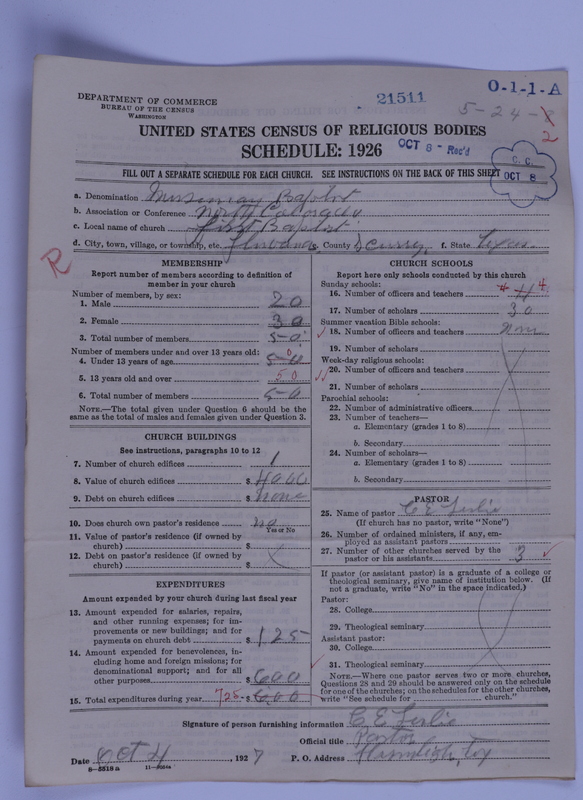 DEPARTMENT OF COMMERCE
BUREAU OF THE CENSUS
WASHINGTON
21511
O-1-1-A
5-24-
2
UNITED STATES CENSUS OF RELIGIOUS BODIES
SCHEDULE: 1926
OCT 8 - Rec'd
C. C.
OCT 8
FILL OUT A SEPARATE SCHEDULE FOR EACH CHURCH. SEE INSTRUCTIONS ON THE BACK OF THIS SHEET
a. Denomination Missionary Baptist
b. Association or Conference North
c. Local name of church First Baptist
d. City, town, village, or township, etc. Fluvanna e. County Scurry f. State Texas
R
MEMBERSHIP
Report number of members according to definition of member in your church
Number of members, by sex:
1. Male 20
2. Female 30
3. Total number of members 50
Number of members under and over 13 years old:
4. Under 13 years of age 50 0
5. 13 years old and over 50
6. Total number of members 50
NOTE.—The total given under Question 6 should be the same as the total of males and females given under Question 3.
CHURCH BUILDINGS
See instructions, paragraphs 10 to 12
7. Number of church edifices 1
8. Value of church edifices $ 4000
9. Debt on church edifices $ none
10. Does church own pastor's residence no
Yes or No
11. Value of pastor's residence (if owned by
church) $
12. Debt on pastor's residence (if owned by
church) $
EXPENDITURES
Amount expended by your church during last fiscal year
13. Amount expended for salaries, repairs,
and other running expenses; for im-
provements or new buildings; and for
payments on church debt $ 125
14. Amount expended for benevolences, in-
cluding home and foreign missions; for
denominational support; and for all
other purposes $ 600
15. Total expenditures during year 725 $ 600
CHURCH SCHOOLS
Report here only schools conducted by this church
Sunday schools:
16. Number of officers and teachers 4
17. Number of scholars 30
Summer vacation Bible schools:
18. Number of officers and teachers none
19. Number of scholars
Week-day religious schools:
20. Number of officers and teachers
21. Number of scholars
Parochial schools:
22. Number of administrative officers
23. Number of teachers—
a. Elementary (grades 1 to 8)
b. Secondary
24. Number of scholars—
a. Elementary (grades 1 to 8)
b. Secondary
PASTOR
25. Name of pastor C E Leslie
(If church has no pastor, write "None")
26. Number of ordained ministers, if any, em-
ployed as assistant pastors
27. Number of other churches served by the
pastor or his assistants 3
If pastor (or assistant pastor) is a graduate of a college or theological seminary, give name of institution below. (If not a graduate, write "No" in the space indicated.)
Pastor:
28. College
29. Theological seminary
Assistant pastor:
30. College
31. Theological seminary
NOTE.—Where one pastor serves two or more churches, Questions 28 and 29 should be answered only on the schedule for one of the churches; on the schedules for the other churches, write "See schedule for church."
Signature of person furnishing information C E Leslie
Official title Pastor
Date Oct 4, 1927 P. O. Address Hermleigh, Tex
8-5518 a